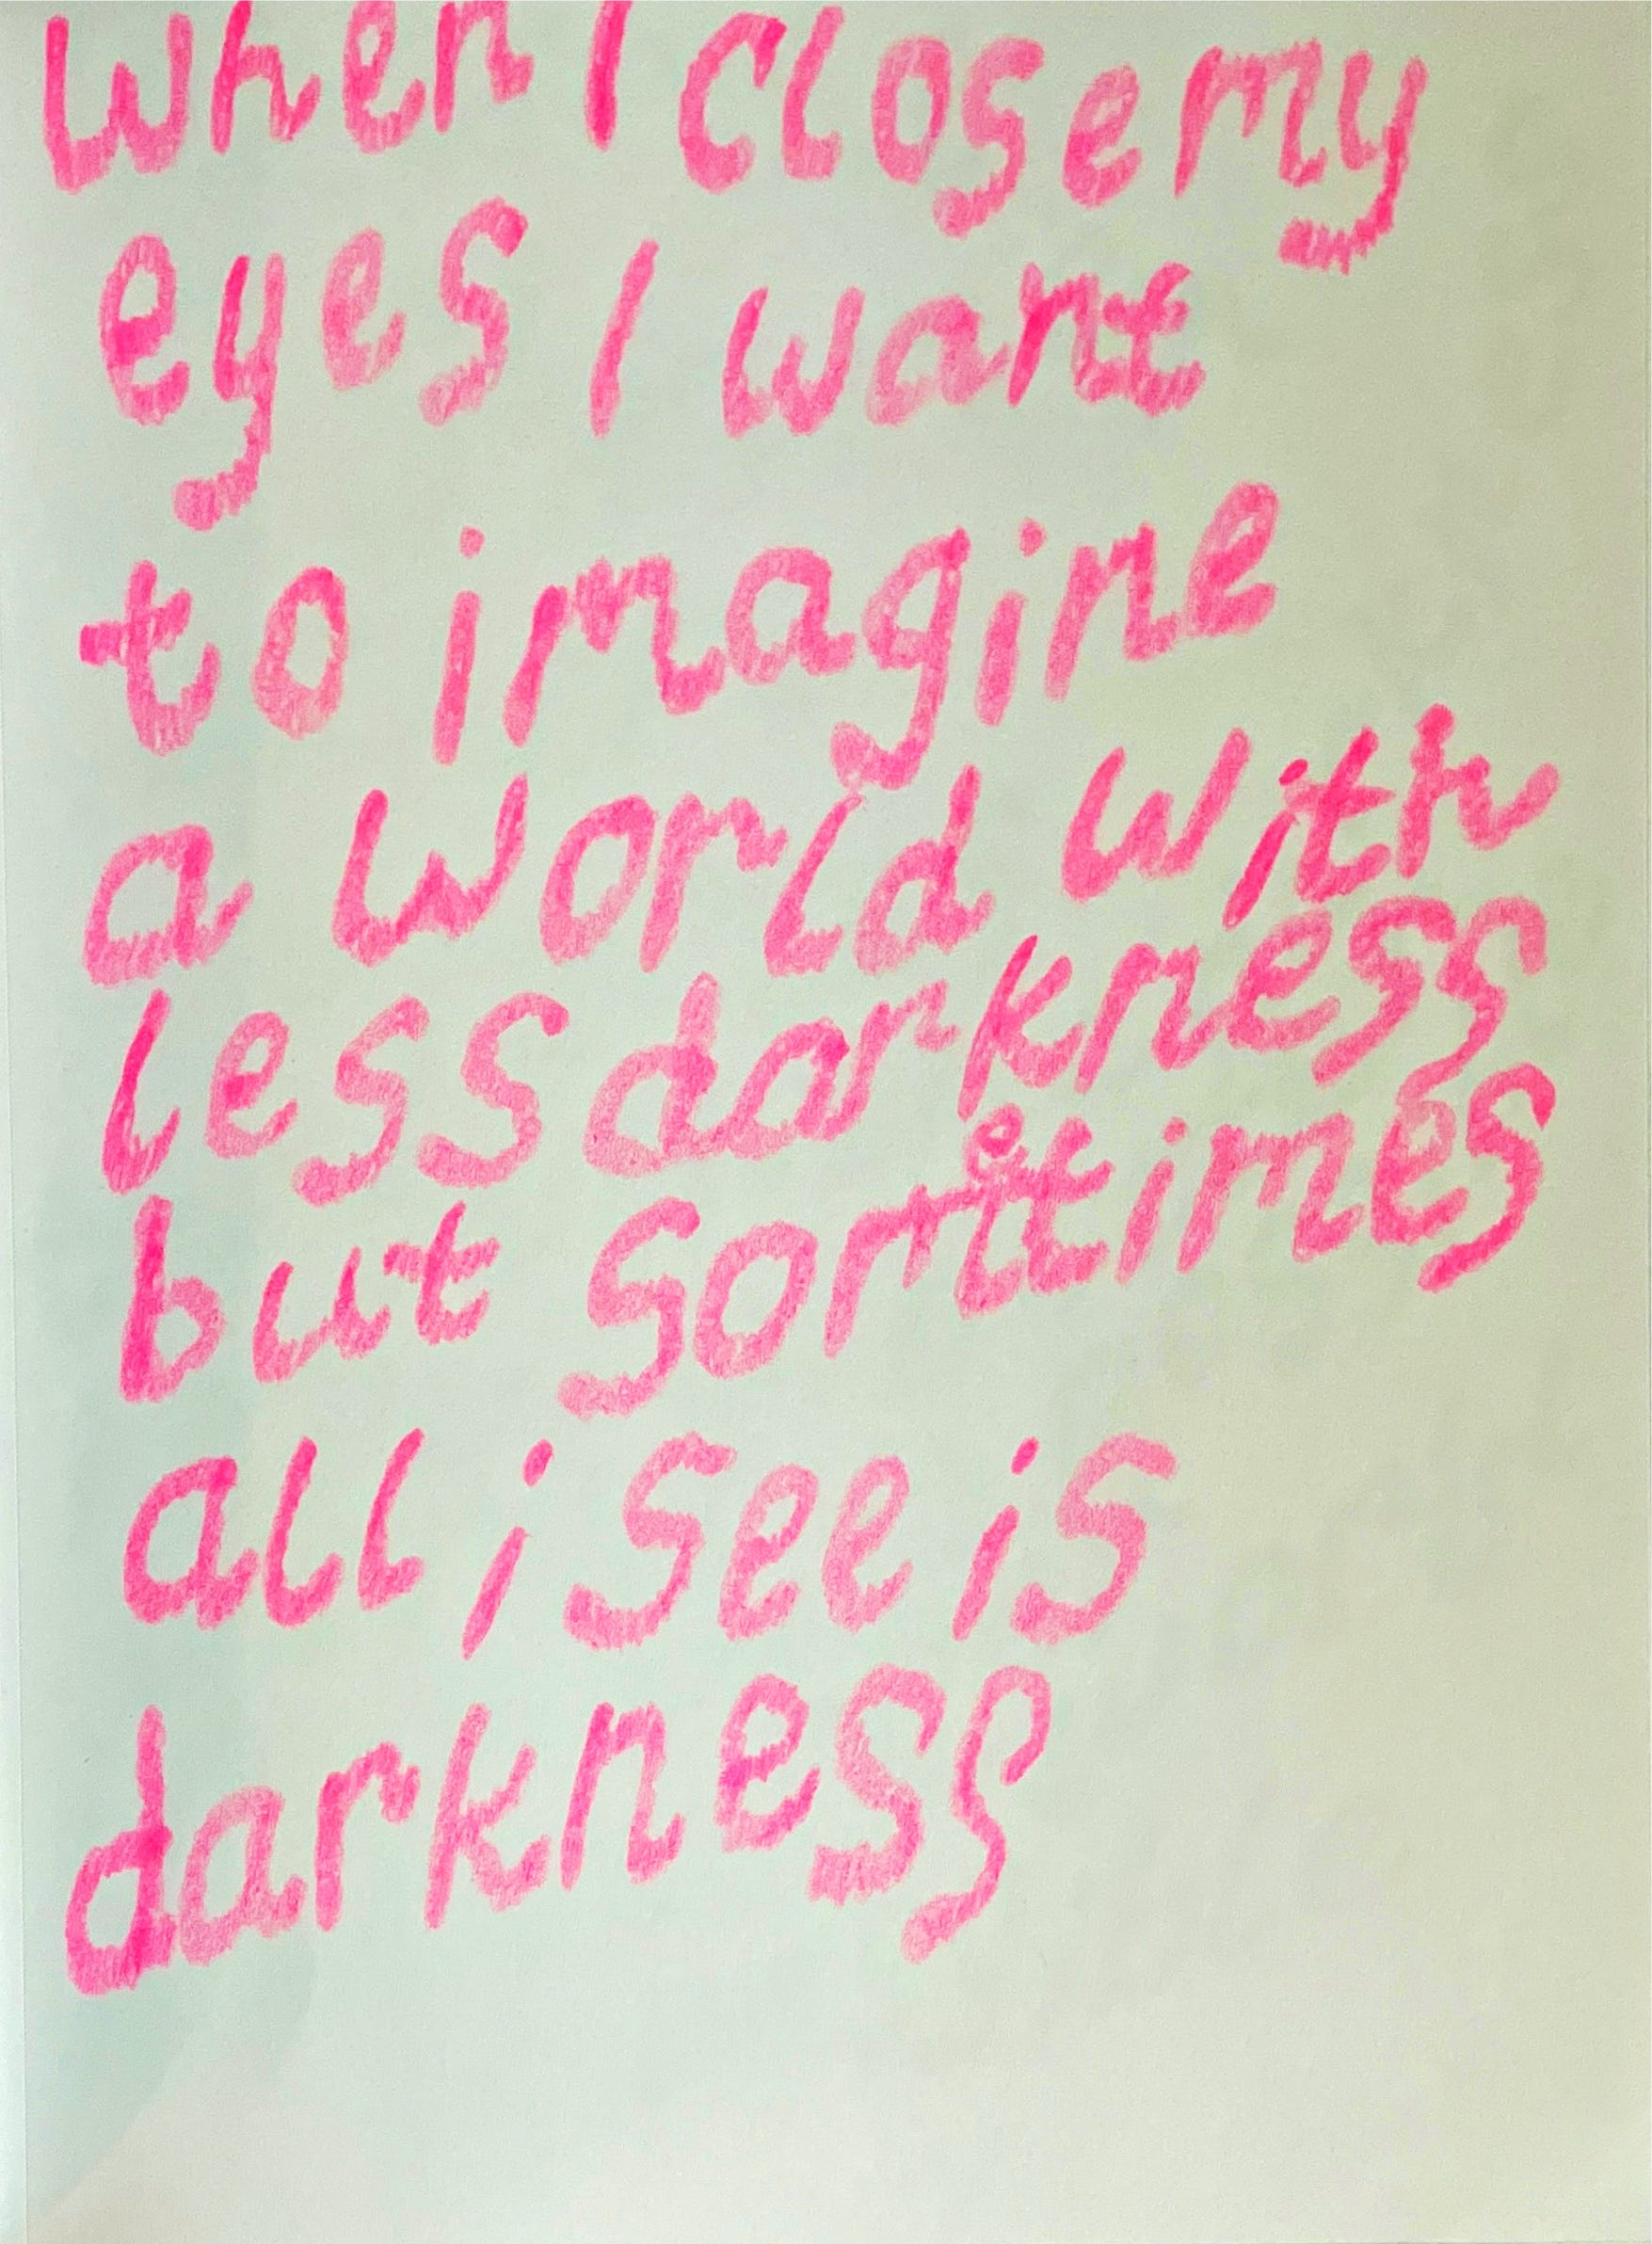 when I close my
eyes I want
to imagine
a world with
less darkness
but sometimes
all i see is
darkness